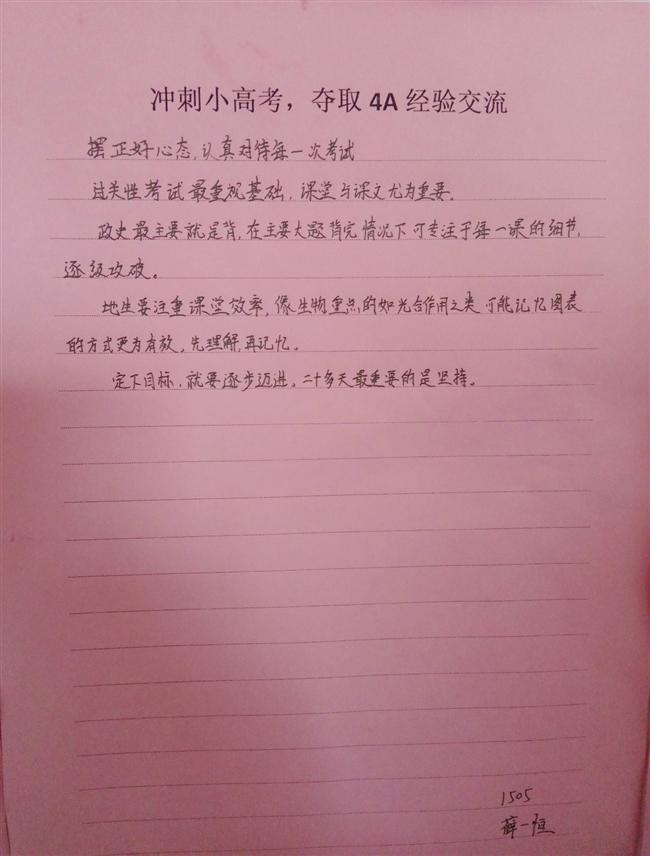 冲刺小高考，夺取 4A 经验交流
摆正好心态，认真对待每一次考试
过关性考试最重视基础，课堂与课文尤为重要。
政史最主要就是背，在主要大题背完情况下可专注于每一课的细节，
逐级攻破。
地生要注重课堂效率，像生物重点的如光合作用之类可能记忆图表
的方式更为有效，先理解，再记忆。
定下目标，就要逐步迈进。二十多天最重要的是坚持。
1505
薛一恒